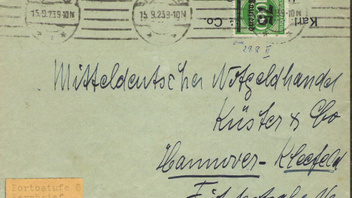 15.9.23.9-10N
15.9.23.9-10N
Karl
& Co.
75
298 II
Mitteldeutscher Notgeldhandel
Küster & Co
Hannover-Kleefeld
Portostufe 8